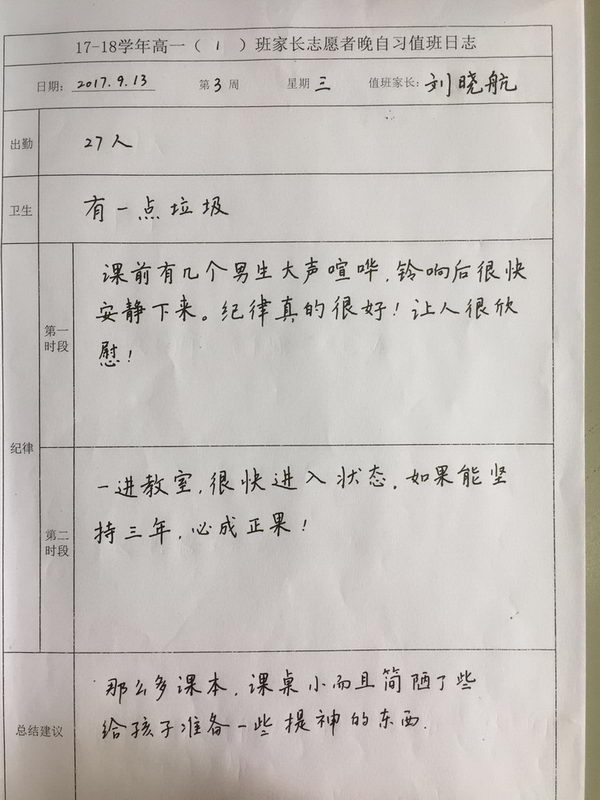 17-18学年高一（ 1 ）班家长志愿者晚自习值班日志
日期： 2017.9.13 第3周 星期 三 值班家长：刘晓航
出勤 27人
卫生 有一点垃圾
纪律
第一时段
课前有几个男生大声喧哗，铃响后很快
安静下来。纪律真的很好！让人很欣
慰！
第二时段
一进教室，很快进入状态，如果能坚
持三年，必成正果！
总结建议
那么多课本，课桌小而且简陋了些
给孩子准备一些提神的东西.